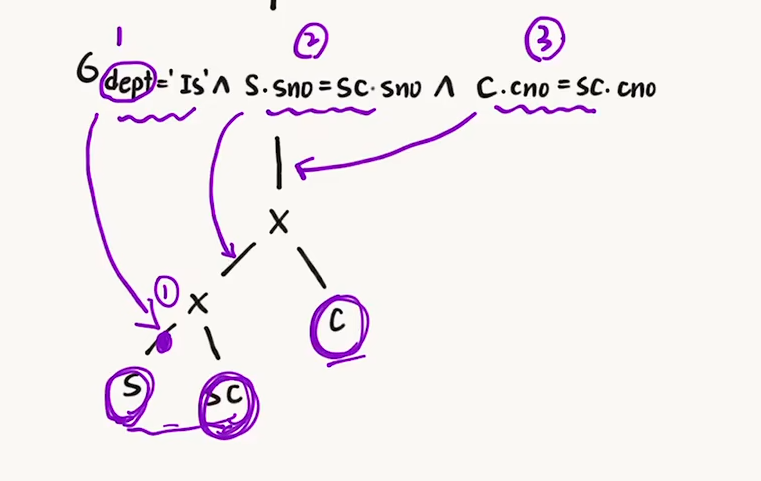 1 ② ③
σ dept='Is'∧ S.sno=SC.sno ∧ C.cno=SC.cno
×
① ×
C
S SC